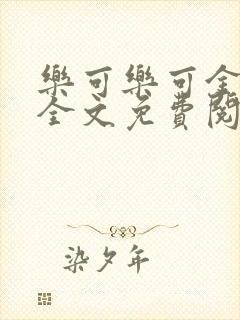 樂可樂可全
全文免費閱
染夕年